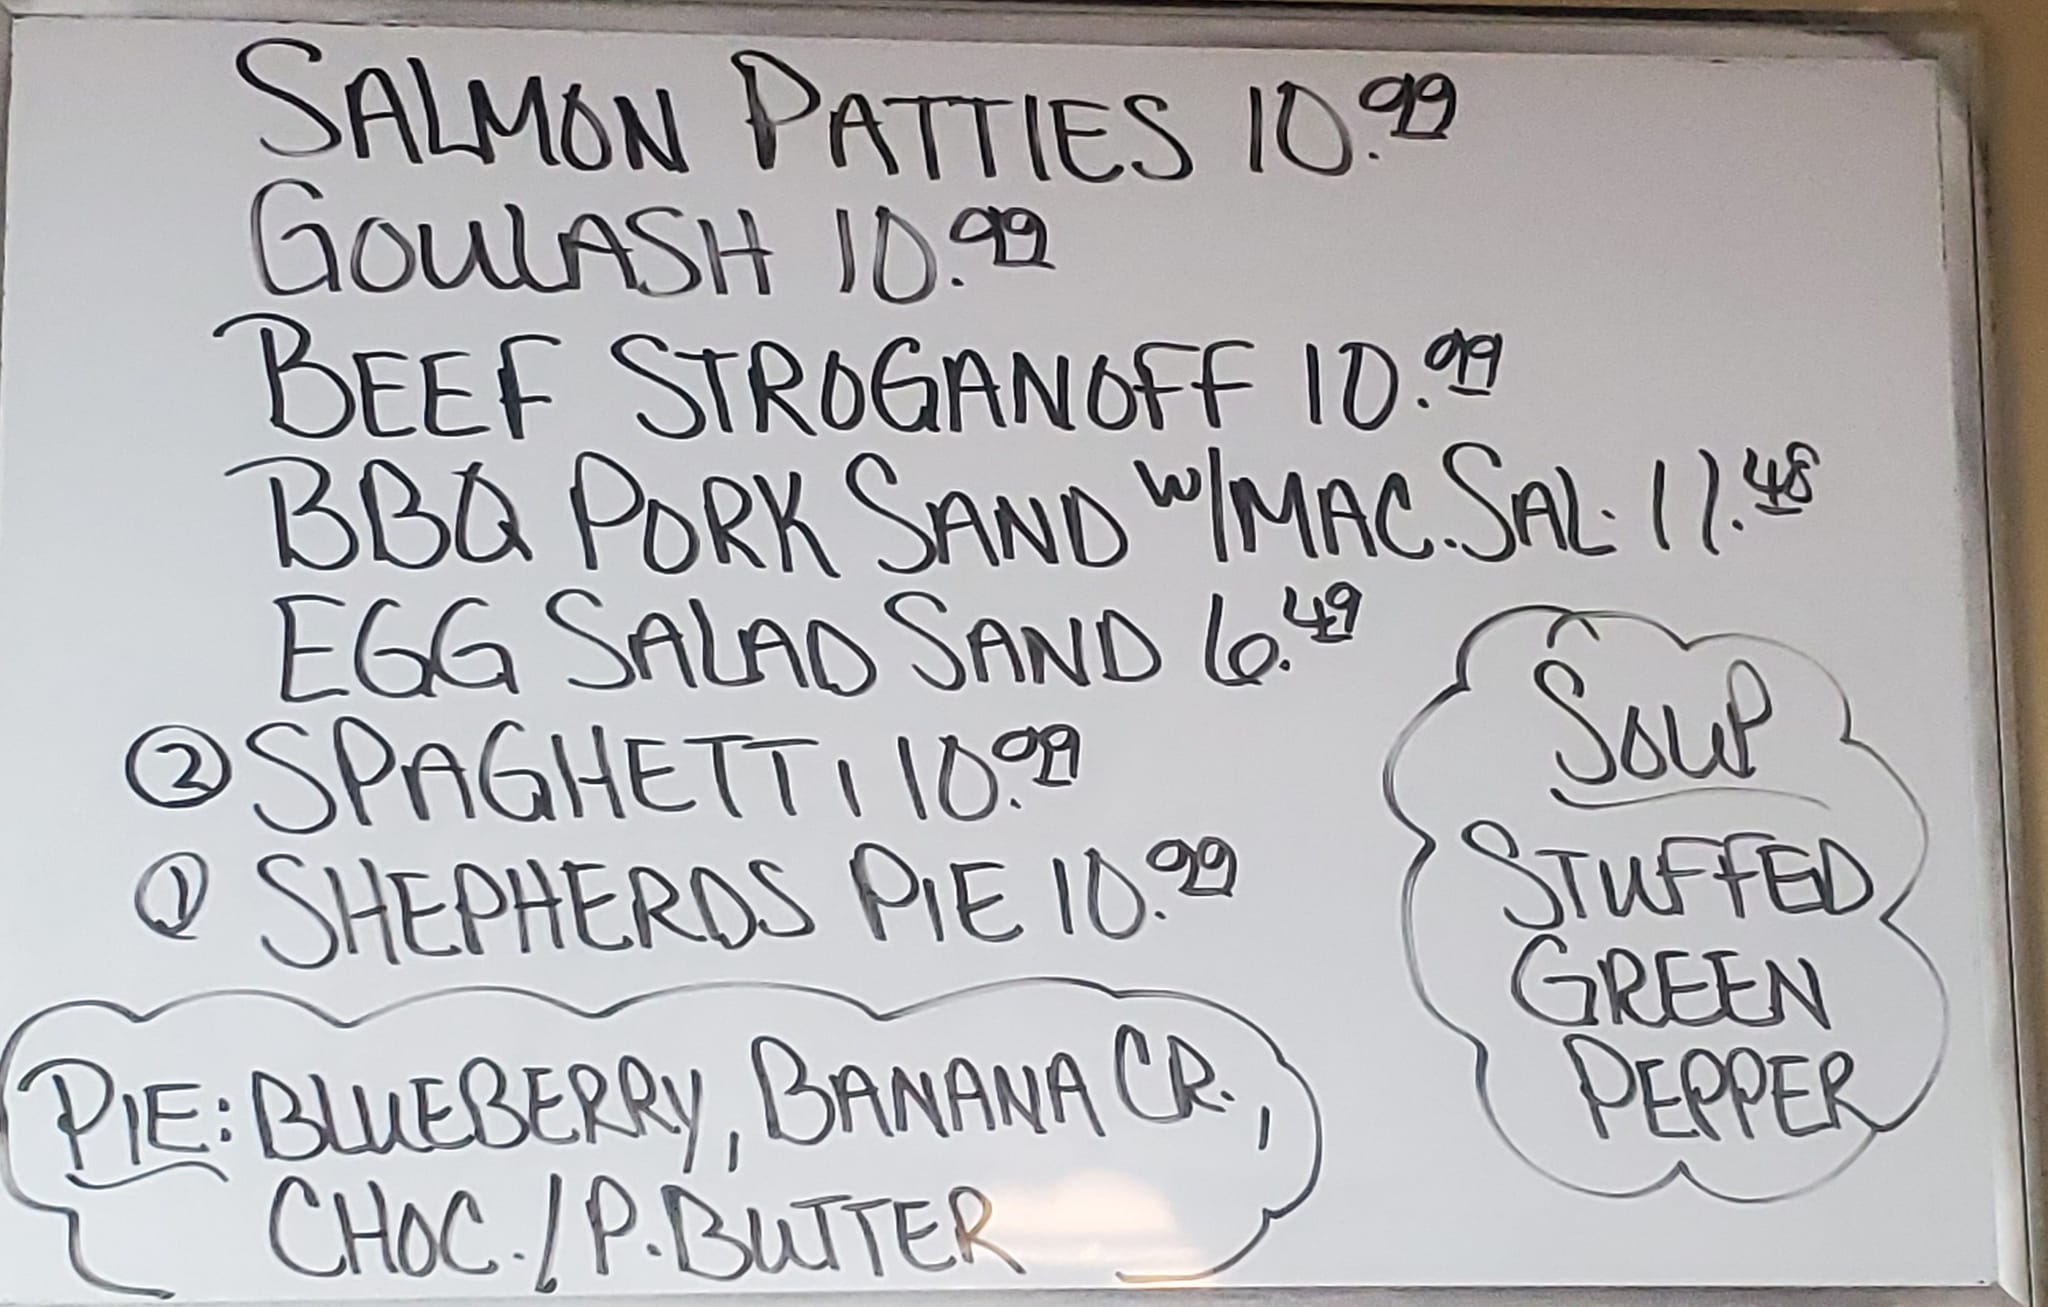 SALMON PATTIES 10.99
GOULASH 10.99
BEEF STROGANOFF 10.99
BBQ PORK SAND w/MAC.SAL. 11.48
EGG SALAD SAND 6.49
② SPAGHETTI 10.99
① SHEPHERDS PIE 10.99
SOUP
STUFFED
GREEN
PEPPER
PIE: BLUEBERRY, BANANA CR.,
CHOC./P.BUTTER